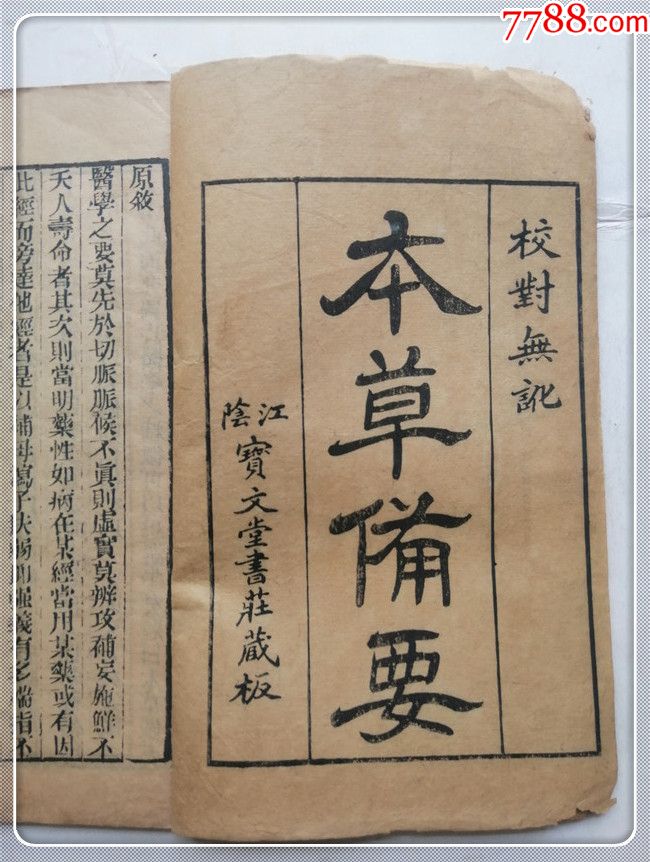 7788.com
校對無訛
本草備要
江陰
寶文堂書莊藏板
原敘
醫學之要莫先於切脈脈候不真則虛實莫辨攻補妄施鮮不
夭人壽命者其次則當明藥性如病在某經當用某藥或有因
此經而旁達他經者是以補母瀉子扶弱抑強義有多端指不